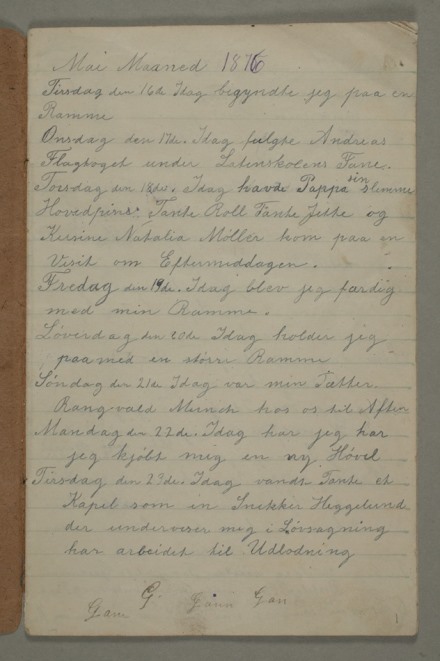 Mai Maaned 1876
Tirsdag den 16de Idag begyndte jeg paa en
Ramme
Onsdag den 17de. Idag fulgte Andreas
Flagtoget under Latenskolens Fane.
Torsdag den 18de. Idag havde Pappa sin slemme
Hovedpine. Tante Roll Tante Jette og
Kirsine Natalia Möller kom paa en
Visit om Eftermiddagen.
Fredag den 19de. Idag blev jeg færdig
med min Ramme.
Löverdag den 20de Idag holder jeg
paa med en större Ramme
Söndag den 21de Idag var min Fætter
Rangvald Munch hos os til Aften
Mandag den 22de. Idag har jeg har
jeg kjöbt meg en ny Hövel
Tirsdag den 23de. Idag vandt Tante et
Kapel som in Snekker Heggelund
der underviser meg i Lövsagning
har arbeidet til Udlodning
G.
Gam Gaun Gan